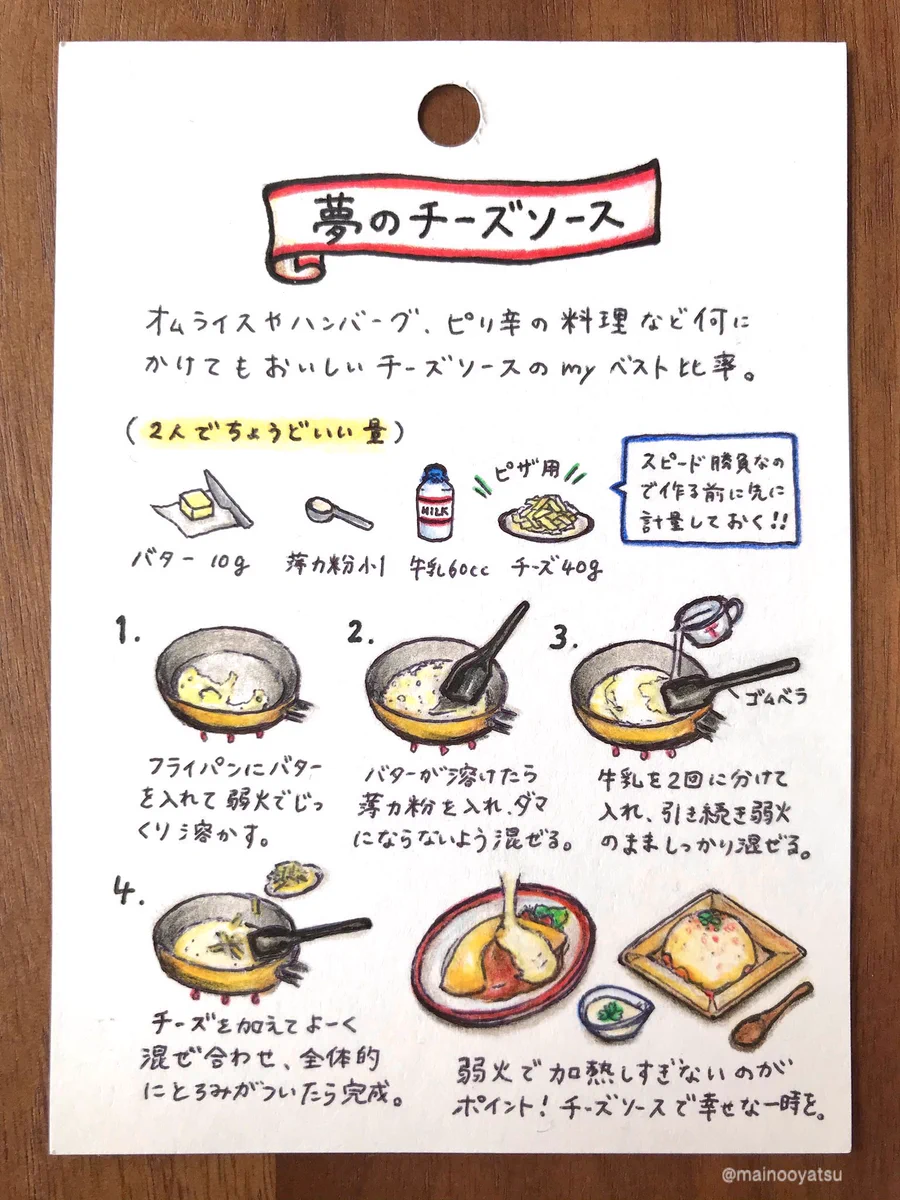 夢のチーズソース
オムライスやハンバーグ、ピリ辛の料理など何に
かけてもおいしいチーズソースのmyベスト比率。
(2人でちょうどいい量)
ピザ用
MILK
スピード勝負なの
で作る前に先に
計量しておく!!
バター 10g
薄力粉小1
牛乳60cc
チーズ40g
1.
フライパンにバター
を入れて弱火でじっ
くり溶かす。
2.
バターが溶けたら
薄力粉を入れ、ダマ
にならないよう混ぜる。
3.
ゴムベラ
牛乳を2回に分けて
入れ、引き続き弱火
のまましっかり混ぜる。
4.
チーズを加えてよーく
混ぜ合わせ、全体的
にとろみがついたら完成。
弱火で加熱しすぎないのが
ポイント!チーズソースで幸せな一時を。
@mainooyatsu